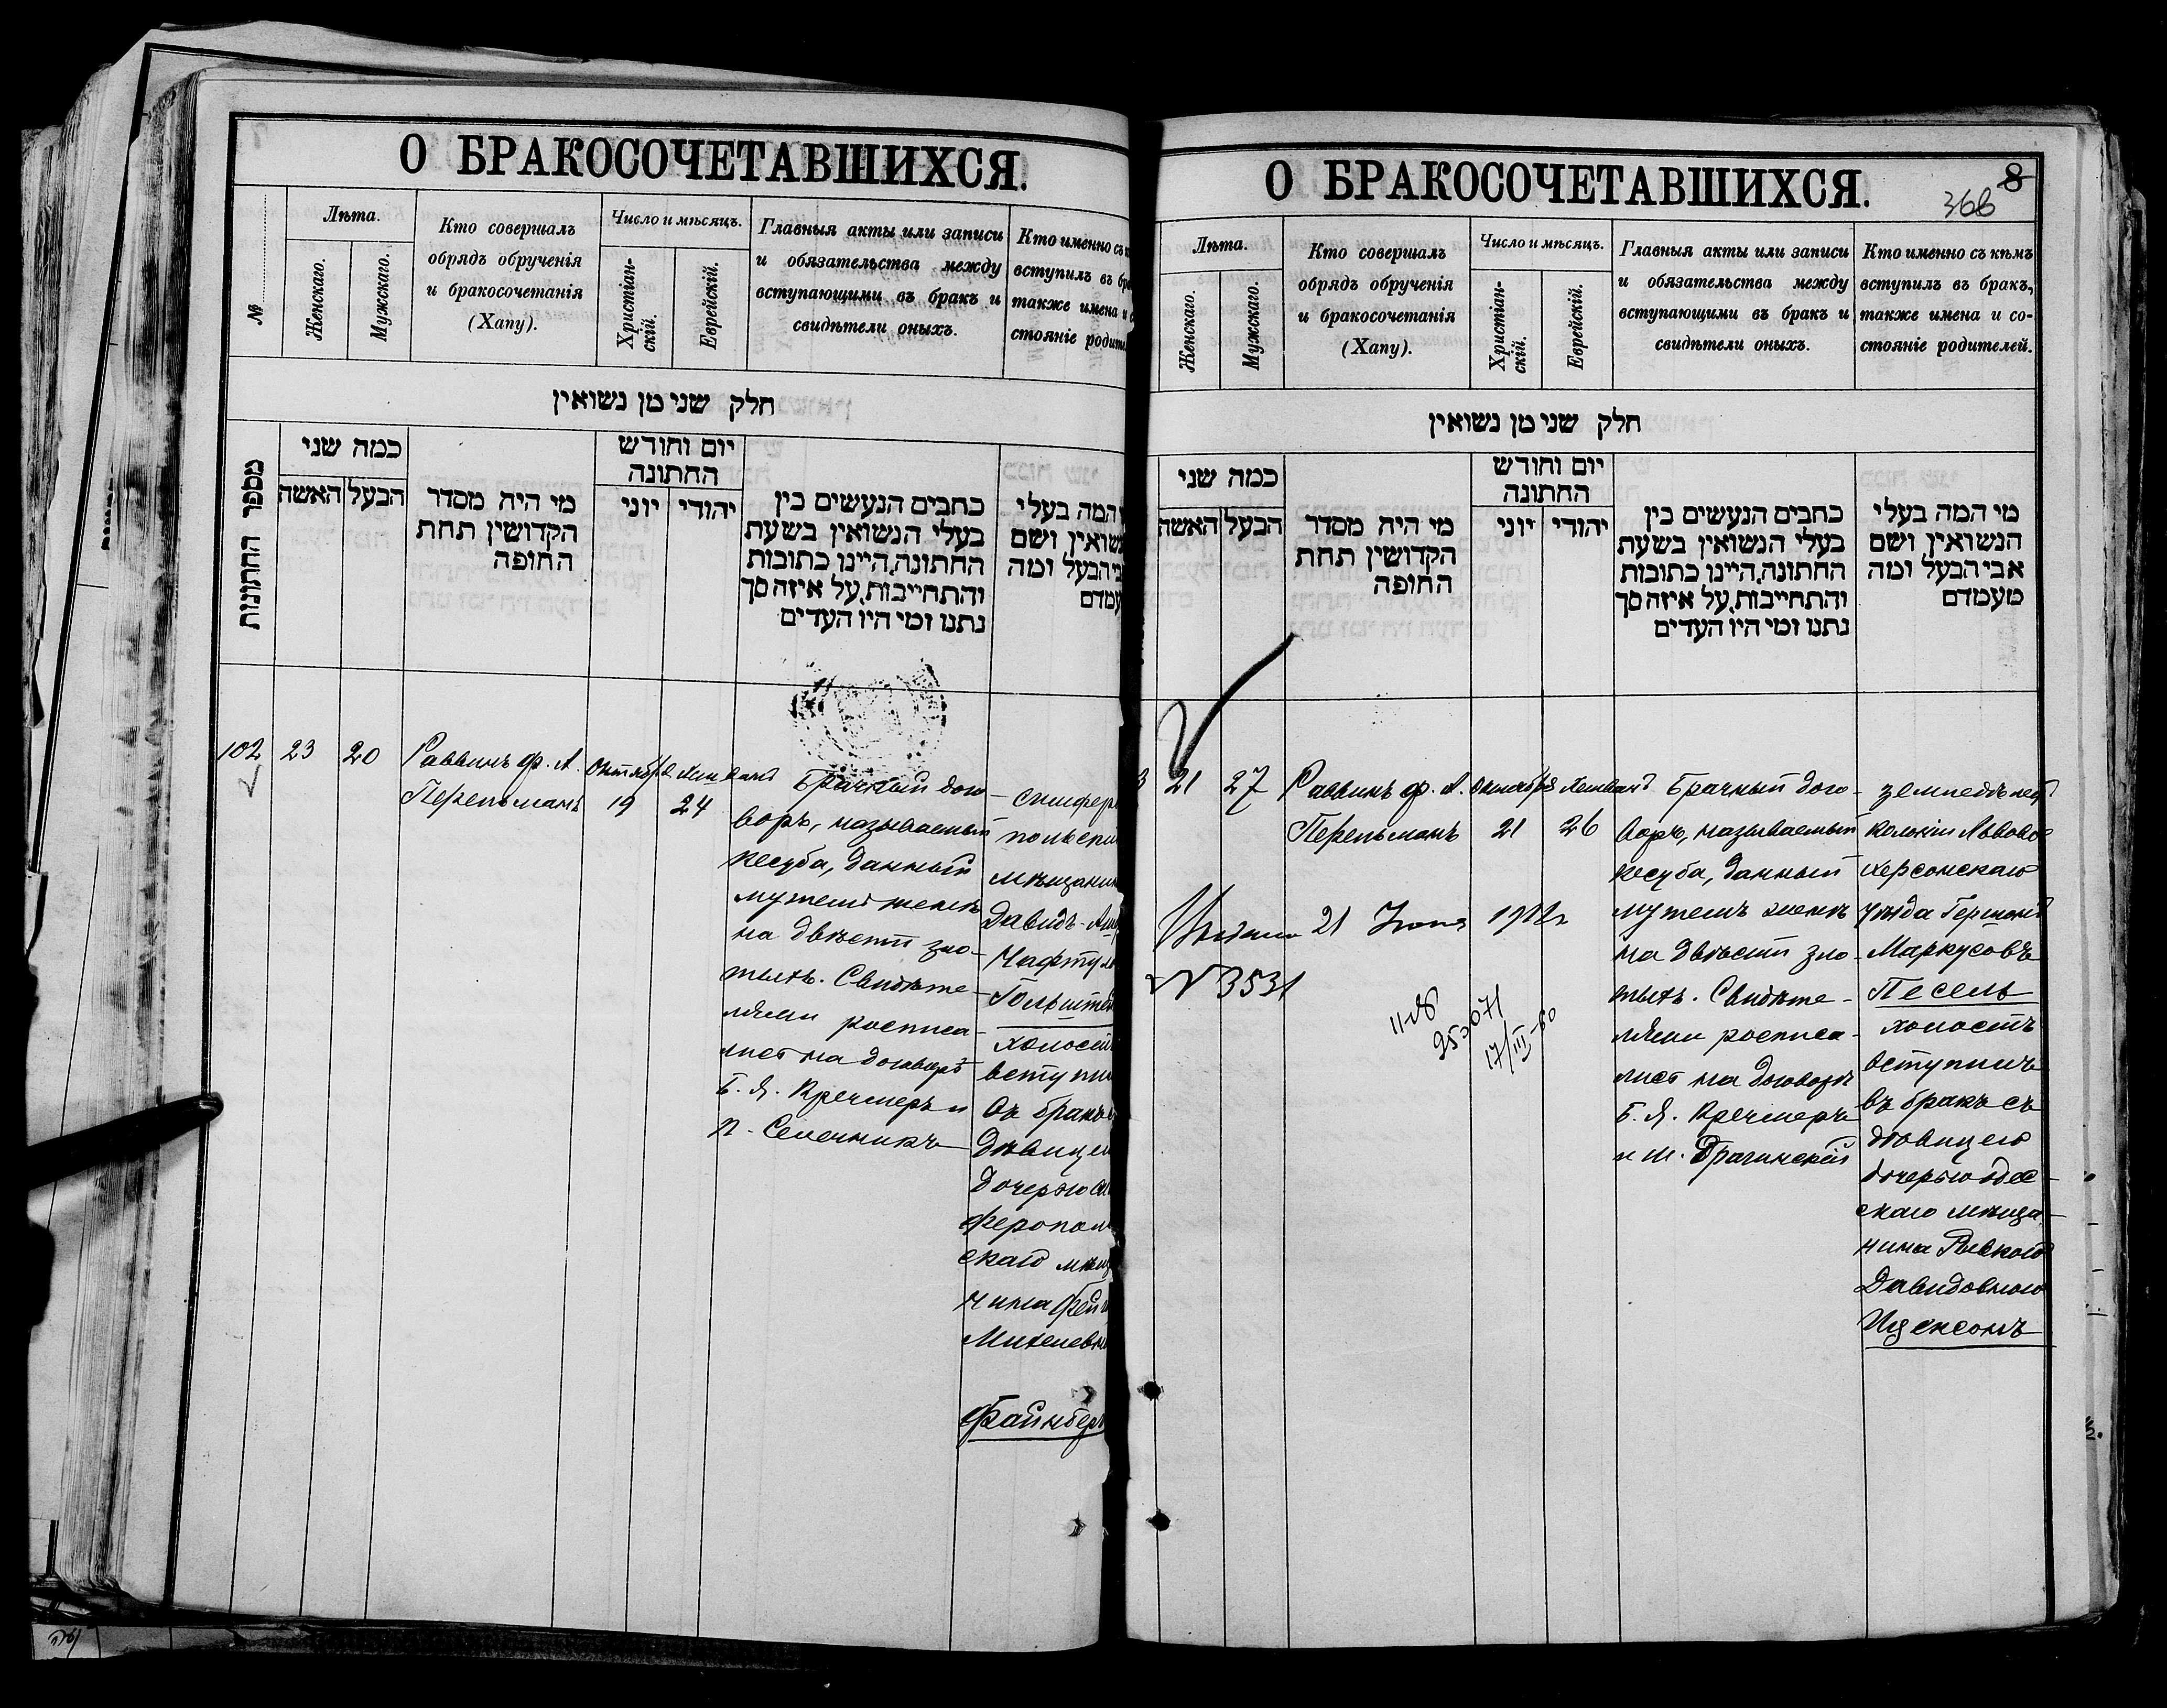 О БРАКОСОЧЕТАВШИХСЯ.
№
Лѣта.
Женскаго.
Мужскаго.
Кто совершалъ
обрядъ обрученія
и бракосочетанія
(Хапу).
Число и мѣсяцъ.
Христіан-
скій.
Еврейскій.
Главныя акты или записи
и обязательства между
вступающими въ бракъ и
свидѣтели оныхъ.
Кто именно съ
вступилъ въ
также имена и
стояніе
חלק שני מן נשואין
מספר החתונות
כמה שני
הבעל
האשה
מי היה מסדר
הקדושין תחת
החופה
יום וחודש
החתונה
יהודי
יוני
כתבים הנעשים בין
בעלי הנשואין בשעת
החתונה, היינו כתובות
והתחייבות, על איזה סך
נתנו ומי היו העדים
המה בעלי
ושם
הבעל ומה
102
23
20
Раввинъ ф. А.
Перельманъ
Октября
19
Хешванъ
24
Брачный дого-
воръ, называемый
кесуба, данный
мужемъ женѣ
на двѣсти зло-
тыхъ. Свидѣте-
лями росписа-
лись на договорѣ
Б. Я. Кречмеръ и
Давидъ-
холостъ
дочерью
скаго
О БРАКОСОЧЕТАВШИХСЯ.
8
366
Лѣта.
Женскаго.
Мужскаго.
Кто совершалъ
обрядъ обрученія
и бракосочетанія
(Хапу).
Число и мѣсяцъ.
Христіан-
скій.
Еврейскій.
Главныя акты или записи
и обязательства между
вступающими въ бракъ и
свидѣтели оныхъ.
Кто именно съ кѣмъ
вступилъ въ бракъ,
также имена и со-
стояніе родителей.
חלק שני מן נשואין
כמה שני
הבעל
האשה
מי היה מסדר
הקדושין תחת
החופה
יום וחודש
החתונה
יהודי
יוני
כתבים הנעשים בין
בעלי הנשואין בשעת
החתונה, היינו כתובות
והתחייבות, על איזה סך
נתנו ומי היו העדים
מי המה בעלי
הנשואין, ושם
אבי הבעל ומה
מעמדם
21
27
Раввинъ ф. А.
Перельманъ
Октября
21
Хешванъ
26
Брачный дого-
воръ, называемый
кесуба, данный
мужемъ женѣ
на двѣсти зло-
тыхъ. Свидѣте-
лями росписа-
лись на договорѣ
Б. Я. Кречмеръ
и М. Брагинскій
земледѣлецъ
колоніи Львовой
Херсонскаго
уѣзда Гершонъ
Маркусовъ
Песель
холостъ
вступилъ
въ бракъ съ
дѣвицею
дочерью одес-
скаго мѣща-
нина Ривкою
Давидовною
Ицексонъ
21
№ 3531
17/III-60